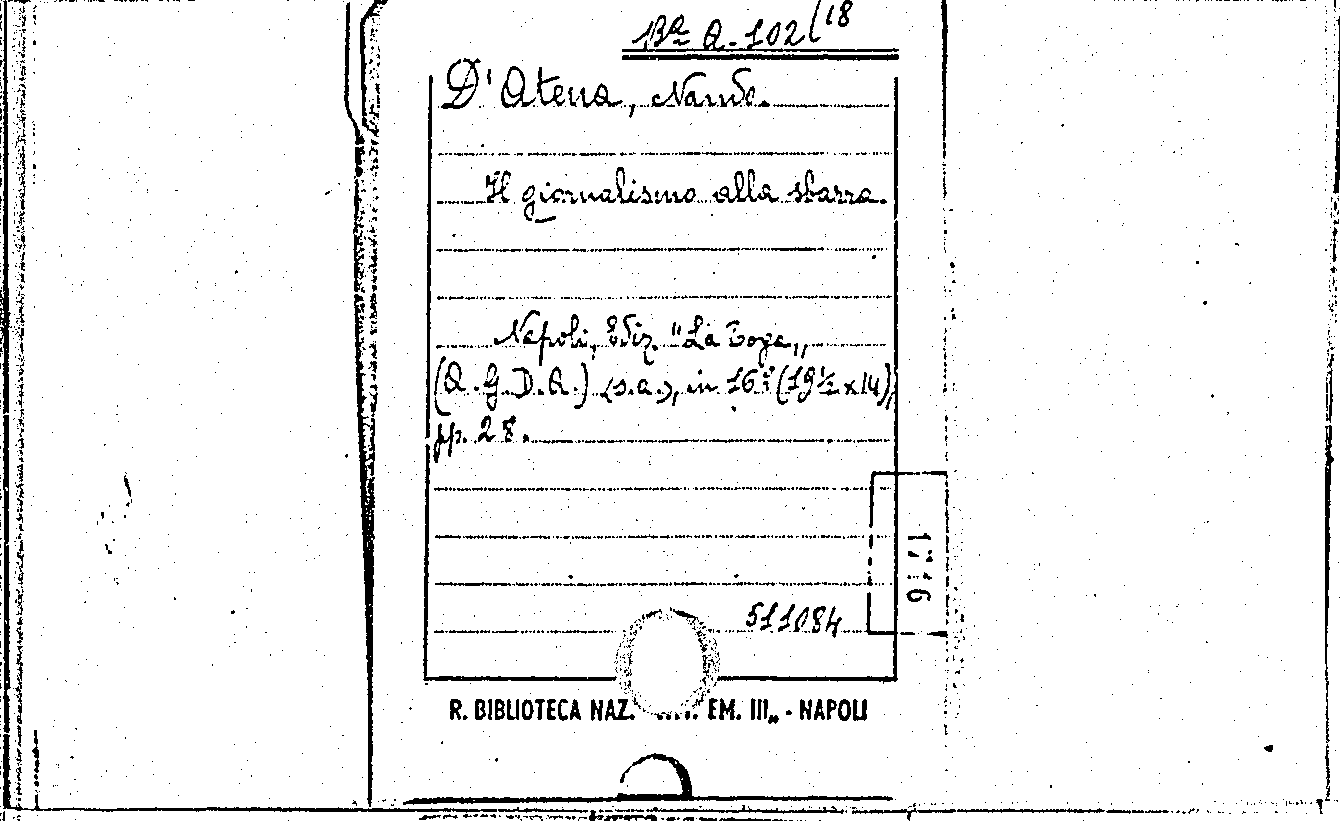 Bª Q. 102 (18
D'Atena, Nando.
Il giornalismo alla sbarra.
Napoli, Ediz. "La Toga„
(A. G. D. A.) (s.a.), in 16.º (19½ x 14),
pp. 28.
511084
R. BIBLIOTECA NAZ. EM. III„ - NAPOLI